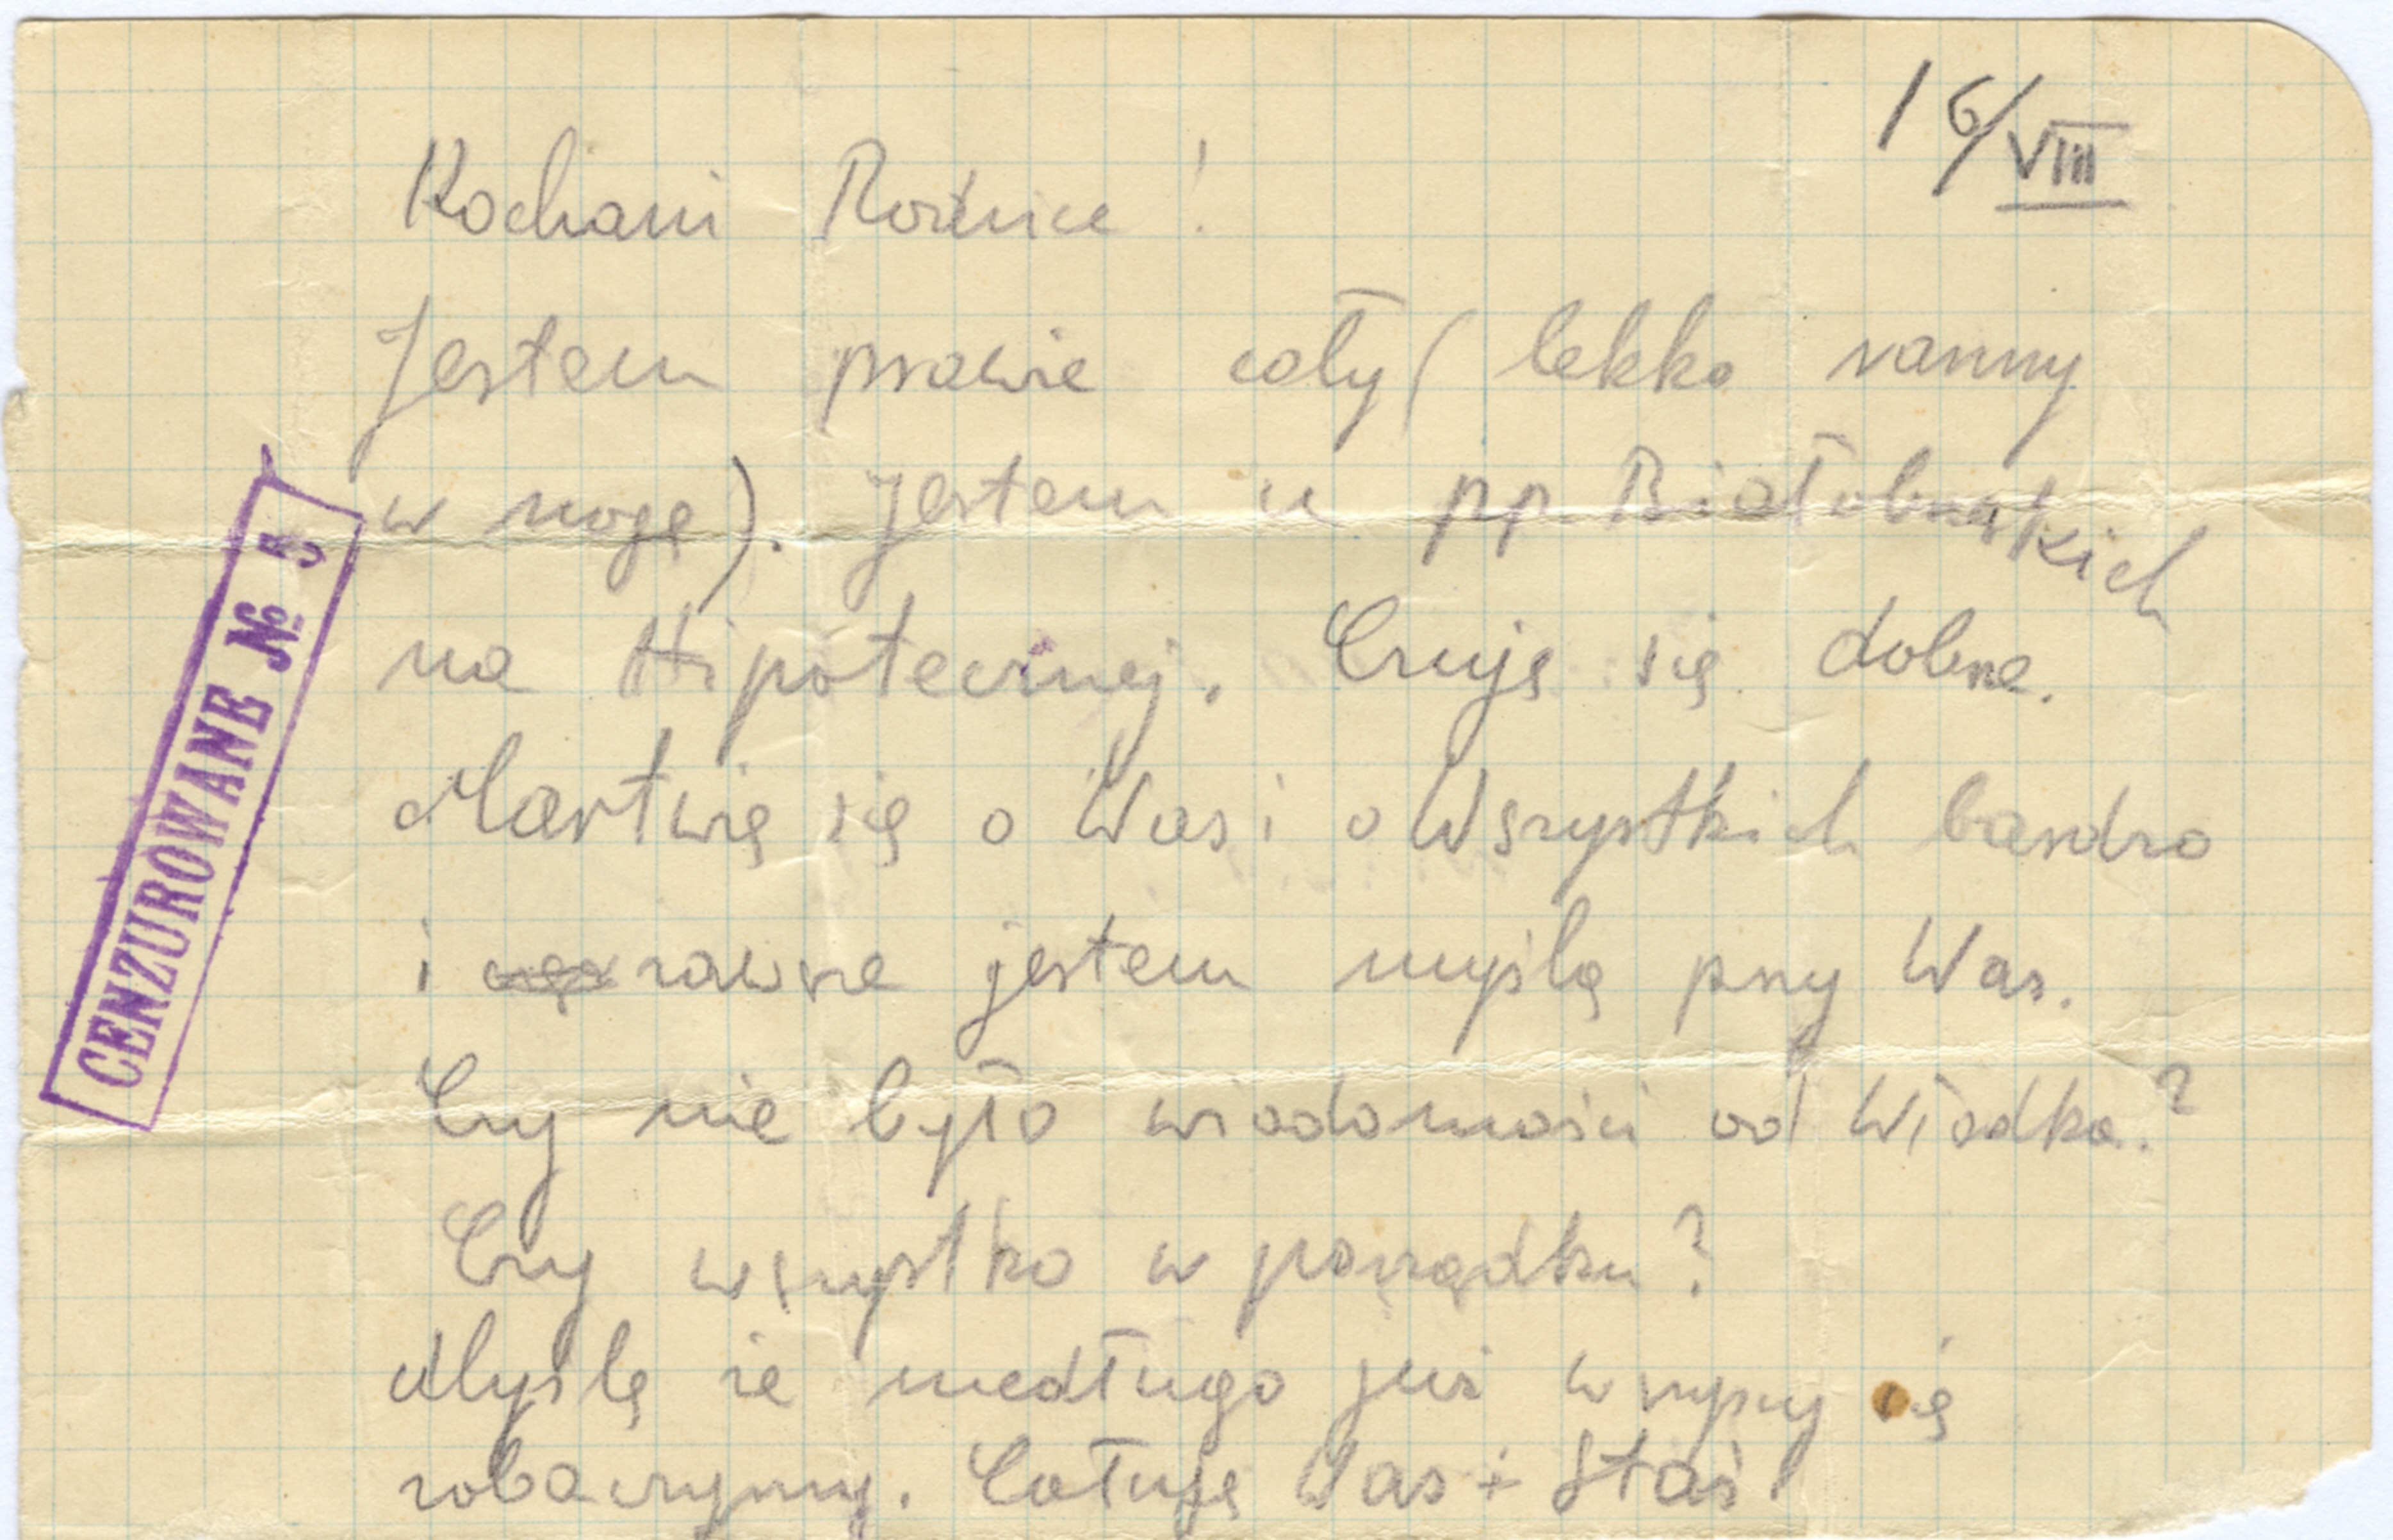 16/VIII
Kochani Rodzice!
Jestem prawie cały (lekko ranny
w nogę). Jestem u pp. Białobrzeskich
na Hipotecznej. Czuję się dobrze.
Martwię się o Was i o Wszystkich bardzo
i zawsze jestem myślą przy Was.
Czy nie było wiadomości od Władka?
Czy wszystko w porządku?
Myślę że niedługo już wszyscy się
zobaczymy. Całuję Was Staś
CENZUROWANE № 5